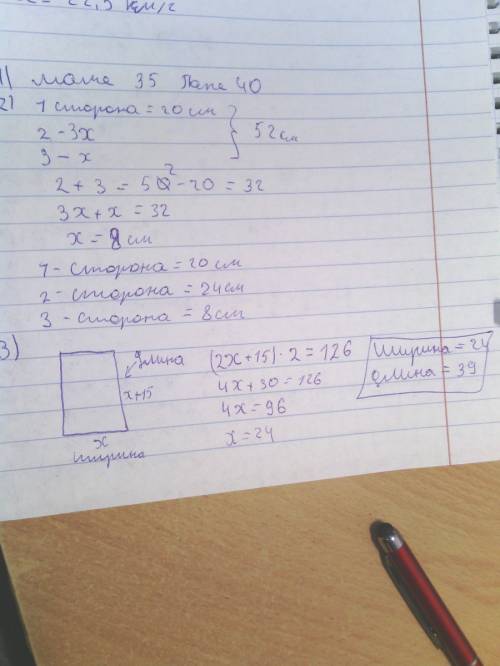 22,5 км/ч
1) маме 35 Папе 40
2) 1 сторона = 20 см
2 - 3x
3 - x
52 см
2 + 3 = 52 - 20 = 32
3x + x = 32
x = 8 см
1 - сторона = 20 см
2 - сторона = 24 см
3 - сторона = 8 см
3)
длина
x+15
x
ширина
(2x+15)·2 = 126
4x+30=126
4x=96
x=24
Ширина = 24
длина = 39